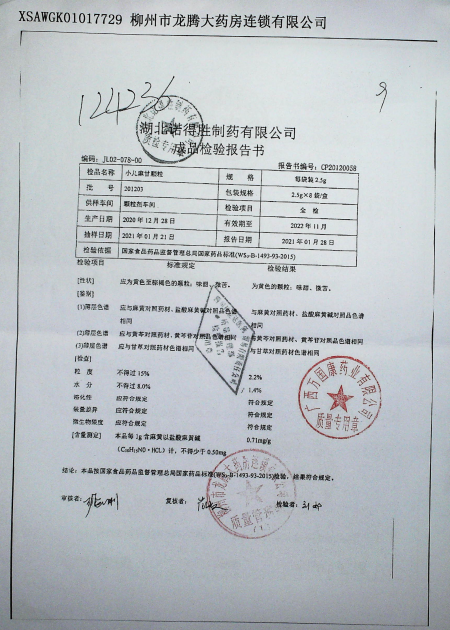 XSAWGK01017729 柳州市龙腾大药房连锁有限公司
124236
9
湖北诺得胜制药有限公司
成品检验报告书
编码: JL02-078-00 报告书编号: CP20120058
检品名称 小儿麻甘颗粒 规 格 每袋装2.5g
批 号 201203 包装规格 2.5g×8袋/盒
供样车间 颗粒剂车间 检验项目 全 检
生产日期 2020年12月28日 有效期至 2022年11月
抽样日期 2021年01月21日 报告日期 2021年01月28日
检验依据 国家食品药品监督管理总局国家药品标准(WS₃-B-1493-93-2015)
检验项目 标准规定 检验结果
[性状] 应为黄色至棕褐色的颗粒; 味甜、微苦。 为黄色的颗粒; 味甜、微苦。
[鉴别]
(1)薄层色谱 应与麻黄对照药材、盐酸麻黄碱对照品色谱相同 与麻黄对照药材、盐酸麻黄碱对照品色谱相同
(2)薄层色谱 应与黄芩对照药材、黄芩苷对照品色谱相同 与黄芩对照药材、黄芩苷对照品色谱相同
(3)薄层色谱 应与甘草对照药材色谱相同 与甘草对照药材色谱相同
[检查]
粒 度 不得过15% 2.2%
水 分 不得过8.0% 1.4%
溶化性 应符合规定 符合规定
装量差异 应符合规定 符合规定
微生物限度 应符合规定 符合规定
[含量测定] 本品每1g含麻黄以盐酸麻黄碱 0.71mg/g
(C₁₀H₁₅NO·HCL)计, 不得少于0.50mg
结论: 本品按国家食品药品监督管理总局国家药品标准(WS₃-B-1493-93-2015)检验, 结果符合规定。
审核者: 复核者: 检验者:
广西万国康药业有限公司
质量专用章
柳州市龙腾大药房连锁有限公司
质量管理
(1)
质检专用章